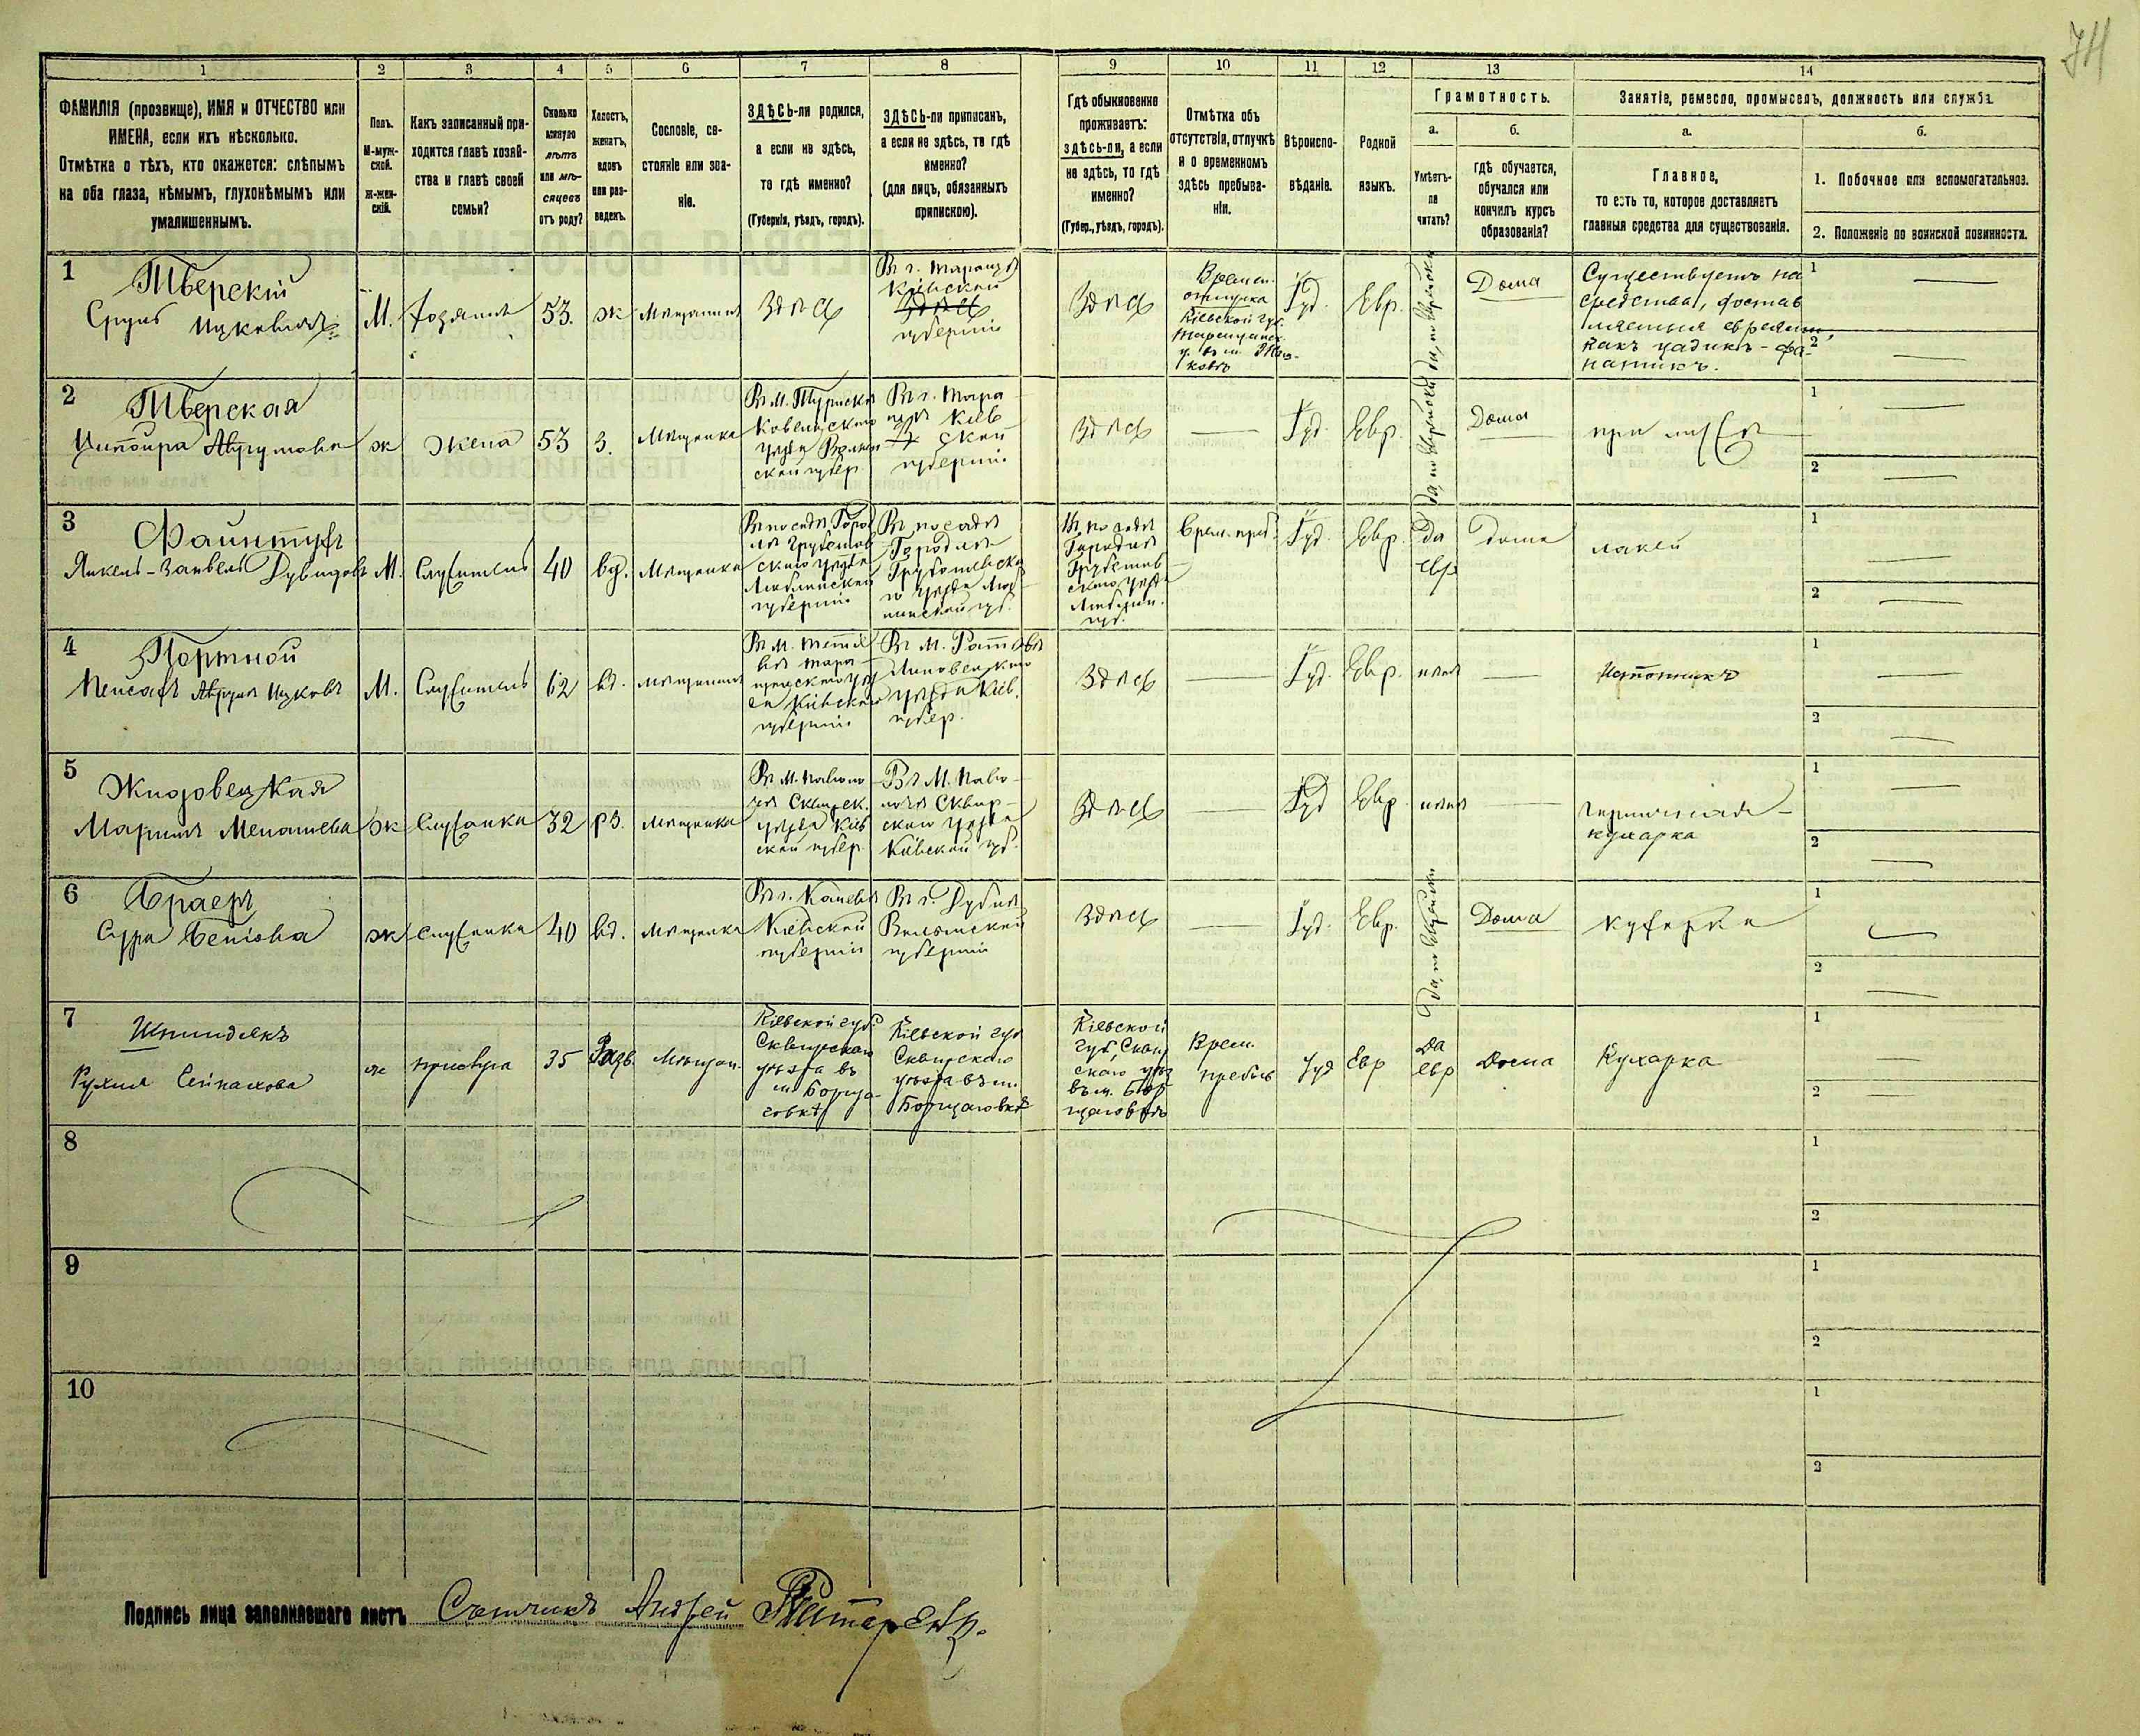 74
1 2 3 4 5 6 7 8 9 10 11 12 13 14
ФАМИЛІЯ (прозвище), ИМЯ и ОТЧЕСТВО или
ИМЕНА, если ихъ нѣсколько.
Отмѣтка о тѣхъ, кто окажется: слѣпымъ
на оба глаза, нѣмымъ, глухонѣмымъ или
умалишеннымъ.
Полъ.
М-муж-
ской.
Ж-жен-
скій.
Какъ записанный при-
ходится главѣ хозяй-
ства и главѣ своей
семьи?
Сколько
минуло
лѣтъ
или мѣ-
сяцевъ
отъ роду?
Холостъ,
женатъ,
вдовъ
или раз-
веденъ.
Сословіе, со-
стояніе или зва-
ніе.
ЗДѢСЬ-ли родился,
а если не здѣсь,
то гдѣ именно?
(Губернія, уѣздъ, городъ).
ЗДѢСЬ-ли приписанъ,
а если не здѣсь, то гдѣ
именно?
(для лицъ, обязанныхъ
припискою).
Гдѣ обыкновенно
проживаетъ:
здѣсь-ли, а если
не здѣсь, то гдѣ
именно?
(Губер., уѣздъ, городъ).
Отмѣтка объ
отсутствіи, отлучкѣ
и о временномъ
здѣсь пребыва-
ніи.
Вѣроиспо-
вѣданіе.
Родной
языкъ.
Грамотность.
а.
Умѣетъ-
ли
читать?
б.
гдѣ обучается,
обучался или
кончилъ курсъ
образованія?
Занятіе, ремесло, промыселъ, должность или служба
а.
Главное,
то есть то, которое доставляетъ
главныя средства для существованія.
б.
1. Побочное или вспомогательное.
2. Положеніе по воинской повинности.
1
Тверскій
Срулъ Ицковичъ
М.
Хозяинъ
53.
ж
Мѣщанинъ
Здѣсь
Въ г. Таращѣ
Кіевской
Здѣсь
губерніи
Здѣсь
Времен.
отлучка
Кіевской губ.
Таращанск.
у. въ м.
Іуд.
Евр.
Дома
Существуетъ на
средства, достав
ляемыя евреями,
какъ цадикъ - фа-
натикъ.
1
2
2
Тверская
Ципойра
ж
Жена
53
З.
Мѣщанка
Въ М. Турискѣ
Ковельскаго
уѣзда Волын
ской губер.
Въ г. Тара
щѣ Кіев
ской
губерніи
Здѣсь
Іуд.
Евр.
Дома
при мужѣ
1
2
3
Файнтухъ
Янкель-Занвель Дувидовъ
М.
Служитель
40
вд.
Мѣщанинъ
Въ посадѣ Город
лѣ Грубешов
скаго уѣзда
Люблинской
губерніи
Въ посадѣ
Городлѣ
Грубешовска
го уѣзда Люб
линской губ.
Въ посадѣ
Городлѣ
Грубешов
скаго уѣзда
Люблин.
губ.
Врем. преб.
Іуд.
Евр.
да
евр
дома
лакей
1
2
4
Портной
Пейсахъ Ицковъ
М.
Служитель
62
вд.
мѣщанинъ
Въ М. Тетіе
вѣ Тара
щанскаго уѣз
да Кіевской
губерніи
Въ М.
Липовецкаго
уѣзда Кіев.
губер.
Здѣсь
Іуд.
Евр.
нѣтъ
Истопникъ
1
2
5
Жидовецкая
Маріямъ Менашева
ж
Служанка
32
рз.
мѣщанка
Въ М. Паволо
чѣ Сквирск.
уѣзда Кіев
ской губер.
Въ М. Паво
лочѣ Сквир
скаго уѣзда
Кіевской губ.
Здѣсь
Іуд
Евр
нѣтъ
горничная -
кухарка
1
2
6
Браеръ
Сура
ж
служанка
40
вд.
мѣщанка
Въ г. Каневѣ
Кіевской
губерніи
Въ г. Дубнѣ
Волынской
губерніи
Здѣсь
Іуд.
Евр.
Дома
кухарка
1
2
7
Шпиндекъ
Рухля
ж
прислуга
35
Разв.
Мѣщан.
Кіевской губ.
Сквирскаго
уѣзда въ
м. Борща-
говкѣ
Кіевской губ
Сквирскаго
уѣзда въ м.
Борщаговкѣ
Кіевской
губ, Сквир
скаго уѣз
въ м. Бор
щаговкѣ
Врем.
пребыв
Іуд
Евр
да
евр
дома
Кухарка
1
2
8
1
2
9
1
2
10
1
2
Подпись лица заполнявшаго листъ Счетчикъ Андрей